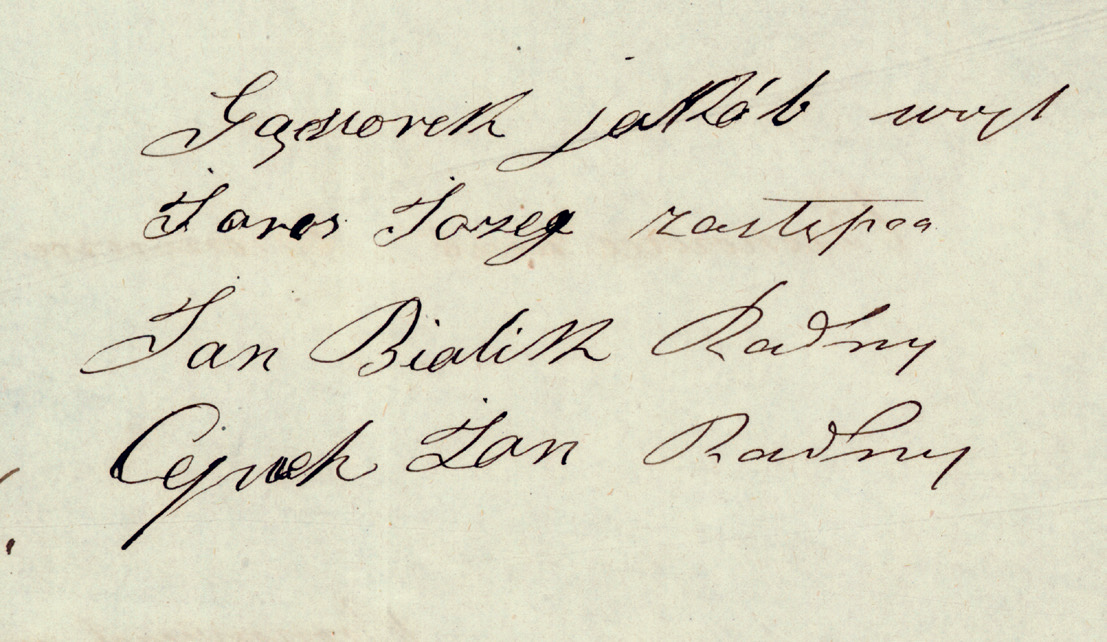 Gąsiorek jakób woyt
Jaros Jozeg zastępca
Jan Bialik Radny
Jan Radny